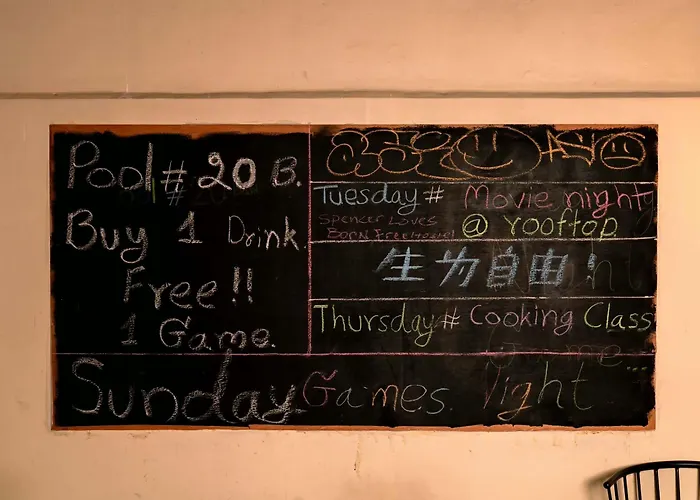 Pool # 20 B.
Buy 1 Drink
Free!!
1 Game.
Tuesday # Movie night
Spencer Loves
Born Free Hostel
@ rooftop
生为自由!
Thursday # Cooking Class
Sunday Games. Night